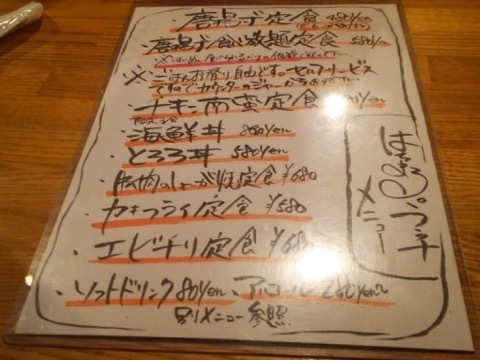 ・唐揚げ定食 480yen
唐揚げ食い放題定食 680yen
※ごはんお替り自由です。セルフサービス
ですのでカウンターのジャーから
チキン南蛮定食
・海鮮丼 800yen
・とろろ丼 580yen
・豚肉のしょーが焼定食 ¥680
・カキフライ定食 ¥580
・エビチリ定食 ¥680
・ソフトドリンク 80yen、アルコール 280yen〜
別メニュー参照
メニュー